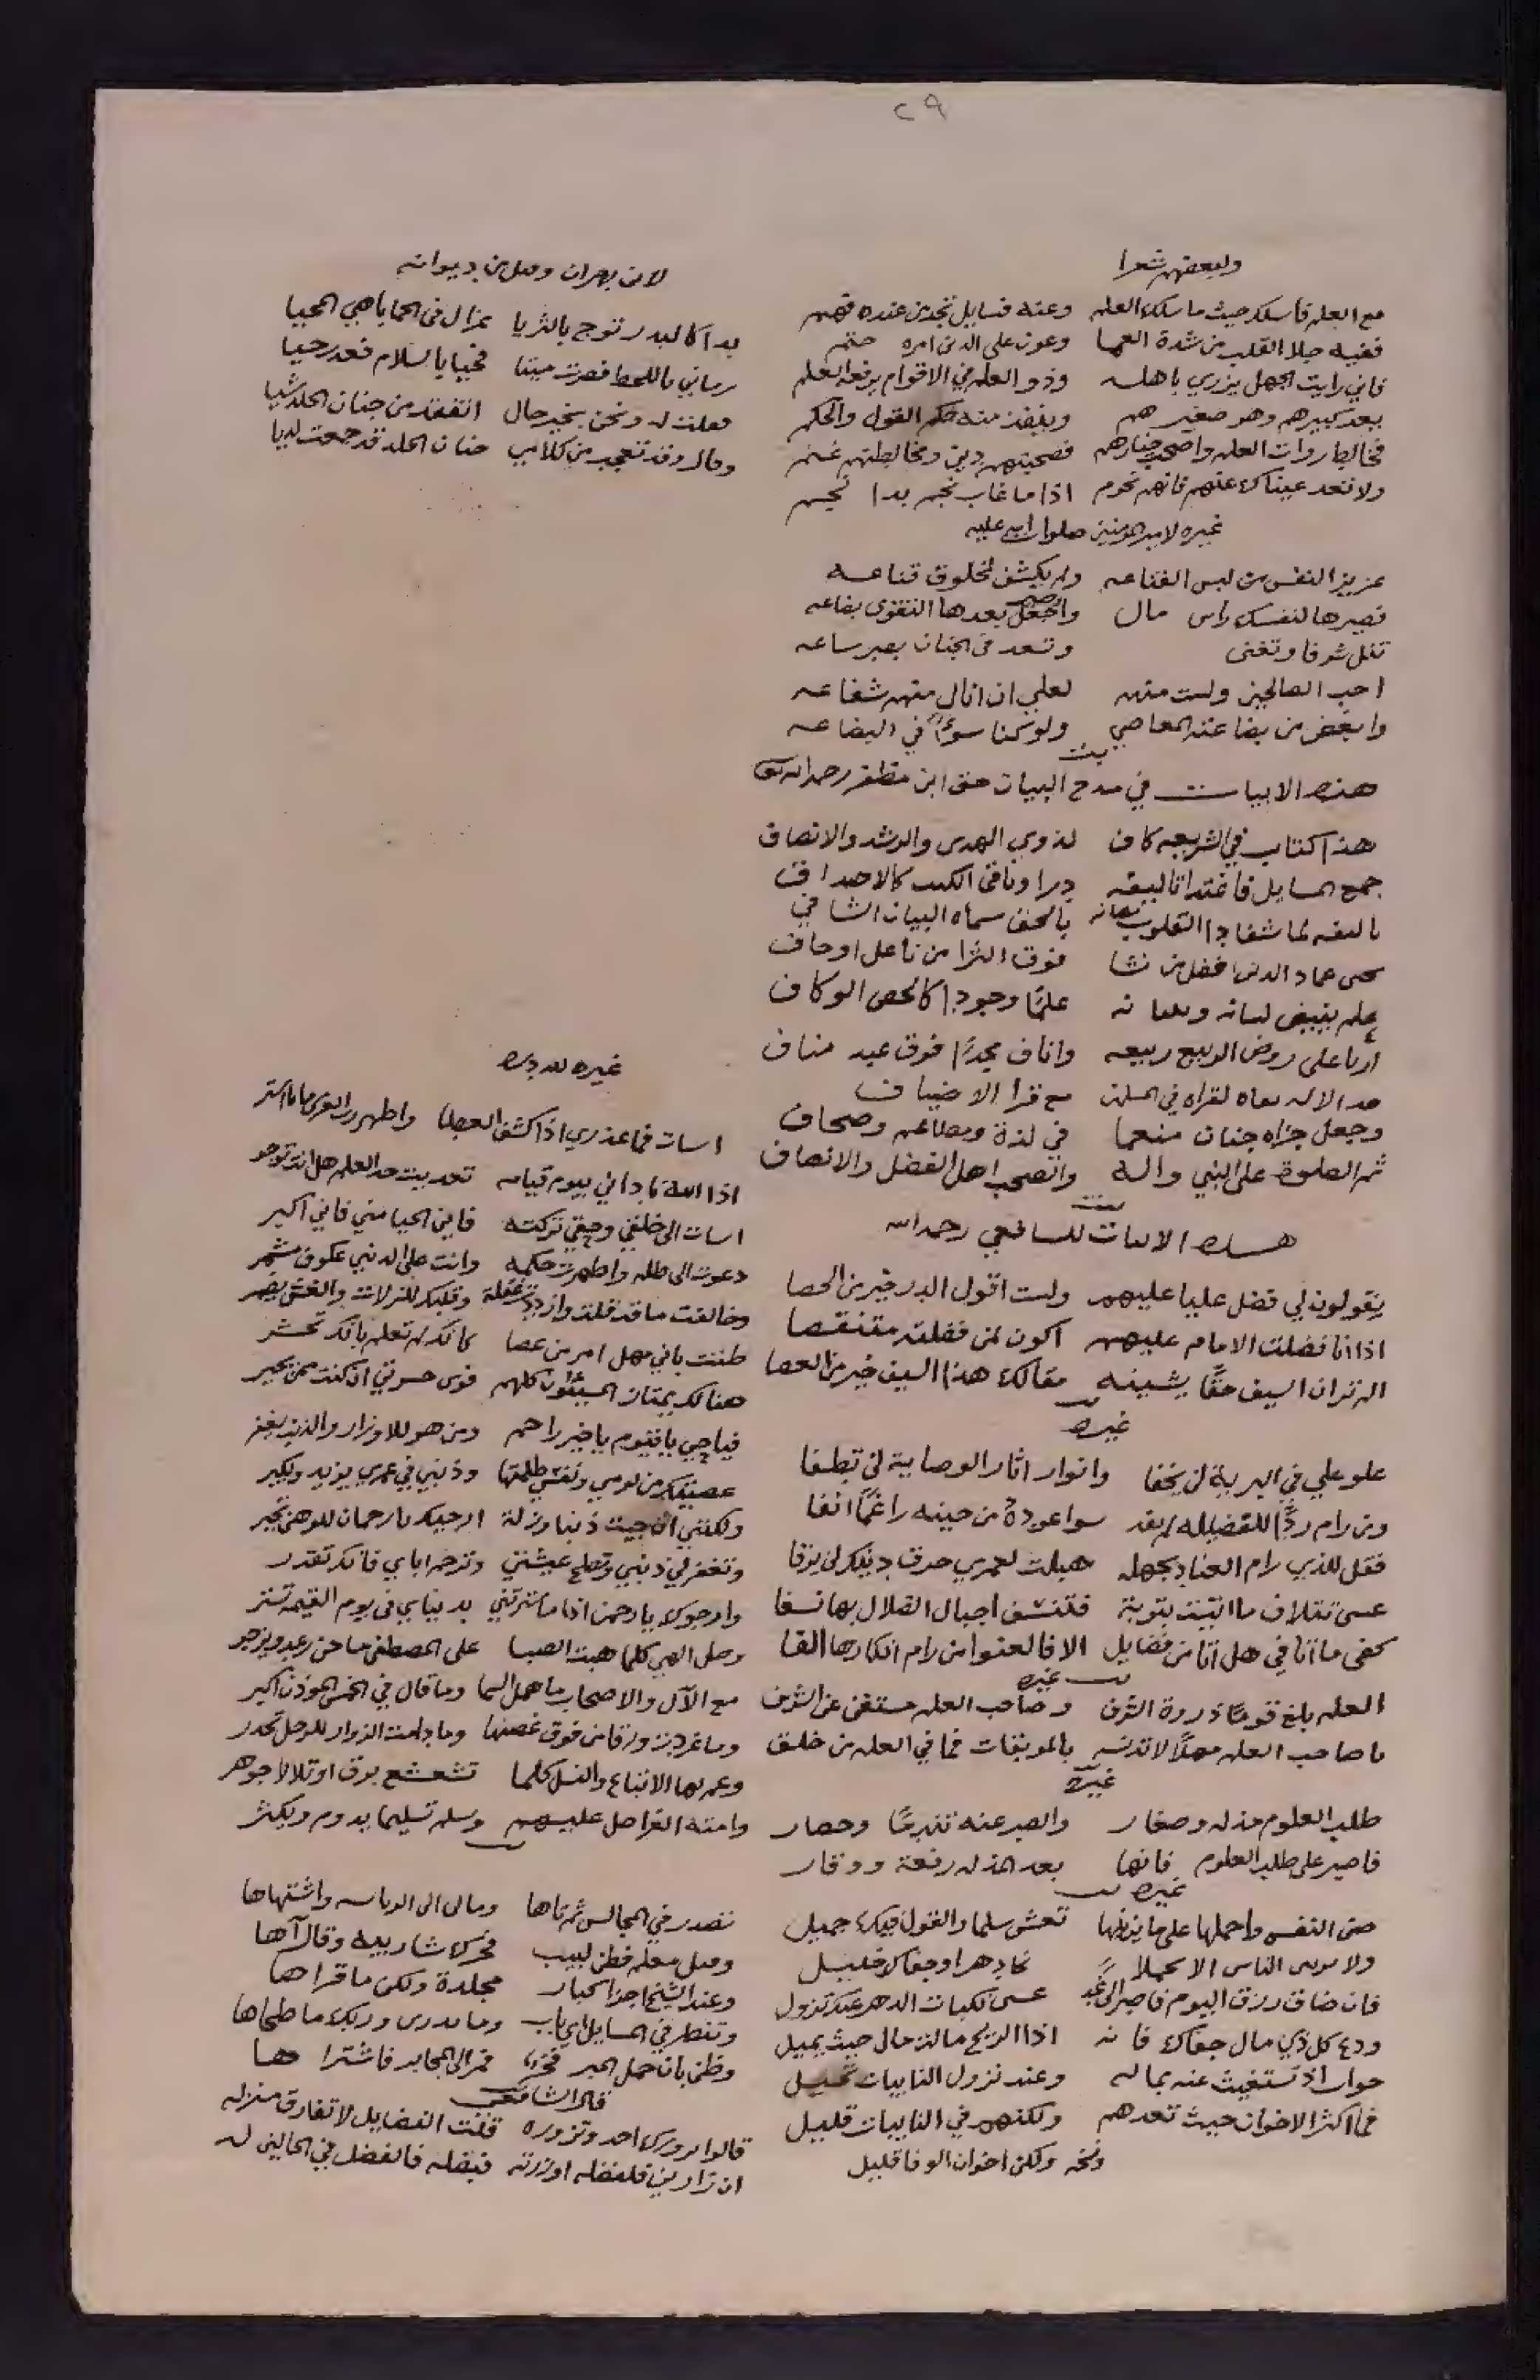 ٢٩
ولبعضهم شعرا
مع العلم فاسلك حيث ما سلك العلم وعنه فسايل تجد من عنده فهم
ففيه جلا القلب من شدة العما وعون على الدين امره حتم
فاني رايت الجهل يزري باهله وذو العلم في الاقوام يرفعه العلم
يعد كبيرهم وهو صغيرهم وينفذ منه حكم القول والحكم
فخالط روات العلم واصحب خيارهم فصحبتهم دين ومخالطتهم غنم
ولا تعد عيناك عنهم فانهم نجوم اذا ما غاب نجم بدا نجم
غيره لامير المومنين صلوات الله عليه
عزيز النفس من لبس القناعه ولم يكشف لمخلوق قناعه
فصيرها لنفسك راس مال واجعل بعدها التقوى بضاعه
تنل شرفا وتغنى وتسعد في الجنان بصبر ساعه
احب الصالحين ولست منهم لعلي ان انال منهم شفاعه
وابغض من بضاعته المعاصي ولو كنا سوءا في البضاعه
هذه الابيات في مدح البيان حق ابن مظفر رحمه الله
هذا كتاب في الشريعه كاف لذوي الهدى والرشد والانصاف
جمع المسايل فاغتدا تاليفه درا وباقي الكتب كالاصداف
بالحق سماه البيان الشافي
فوق الثرا من ناعل او حاف
علم يفيض لسانه علما وجودا
اربا على روض الربيع ربيعه واناف مجدا فوق عبد مناف
مع قرا الاضياف
وجعل جزاه جنان منعما في لذة ومطاعم وصحاف
ثم الصلوة على النبي واله والصحب اهل الفضل والانصاف
هذه الابيات للشافعي رحمه الله
يقولون لي فضل عليا عليهم ولست اقول الدر خير من الحصا
اذا انا فضلت الامام عليهم اكون لمن فضلته متنقصا
الم تر ان السيف حقا يشينه مقالك هذا السيف خير من العصا
غيره
علو علي في البرية لن يخفا وانوار اثار الوصاية لن تطفا
ومن رام ردا للفضيله لم يفد سوا عودة من حينه راغما انفا
فقل للذي رام العناد بجهله هبلت لعمري خرق دينك لن يرفا
عسى تتلاف ما اتيت بتوبة فتنسف اجبال الضلال بها نسفا
كفى ما اتا في هل اتا من فضايل الا فالعنوا من رام انكارها الفا
غيره
العلم بلغ قوما ذروة الشرف وصاحب العلم مستغن عن الشرف
يا صاحب العلم مهلا لا تدنسه بالموبقات فما في العلم من خلف
غيره
طلب العلوم مذله وصغار والصبر عنه تندما وخسار
فاصبر على طلب العلوم فانها بعد المذله رفعة ووقار
غيره
صن النفس واحملها على ما يزينها تعش سلما والقول فيك جميل
ولا ترين الناس الا تجملا نبا دهر او جفاك خليل
فان ضاق رزق اليوم فاصبر الى غد عسى نكبات الدهر عنك تزول
ودع كل ذي مال جفاك فانه اذا الريح مالت مال حيث يميل
جواد اذ تستغيث عنه بماله وعند نزول النايبات
فما اكثر الاخوان حيث تعدهم ولكنهم في النايبات قليل
ولكن اخوان الوفا قليل
لابن بهران ومن ديوانه
بدا كالبدر توج بالثريا غزال في الحمايا هي المحيا
رماني باللحظ فصرت ميتا فحيا بالسلام فعدت حيا
فقلت له ونحن بخير حال اتفقد من جنان الخلد شيا
وقال وقد تعجب من كلامي جنان الخلد قد جمعت لديا
غيره لله دره
اسات فما عذري اذا كشف الغطا واظهر رب العرش ما انا استر
اذا الله نادا ني بيوم قيامه تعديت حد العلم هل انت توجر
اسات الى خلقي وحقي تركته فاين الحيا مني فاني اكبر
دعوت الى ظلم واظهرت حكمه وانت على الدنيا عكوف مشمر
وخالفت ما قد قلت وازددت غفلة وقلبك للزلات والغش يضمر
ظننت باني مهمل امر من عصا كانك لم تعلم بانك تحشر
هنالك يمتاز المسيئون كلهم فوى حسرتي ان كنت ممن يخسر
فيا حي يا قيوم يا خير راحم ومن هو للاوزار والذنب يغفر
عصيتك من لومي ونفسي ظلمتها وذنبي في عمري يزيد ويكبر
ولكنني ان جيت ذنبا وزلة ارجيك يا رحمان للوهن تجبر
وتغفر لي ذنبي وتصلح عيشتي وترحم اباي فانك تقدر
وارجوك يا رحمن اذا ما سترتني بدنياي في يوم القيمة تستر
وصل الهي كلما هبت الصبا على المصطفى ما حن رعد ويزجر
مع الآل والاصحاب ما هل السما وما قال في الخمس الموذن اكبر
وما غردت ورقا من فوق غصنها وما دامت الزوار للرحل تحدر
وعم بها الاتباع والنسل كلما تشعشع برق او تلالا جوهر
وامته الغرا صل عليهم وسلم تسليما يدوم ويكثر
تصدر في المجالس ثم تاها ومال الى الرياسه واشتهاها
ومثل معلم فطن لبيب فحرك شاربيه وقال آها
وعند الشيخ اجزا كبار مجلدة ولكن ما قراها
وتنظر في المسايل اي باب وما يدري وربك ما طحاها
وظن بان حمل الحبر فخرا فمر الى المحابر فاشتراها
قال الشافعي
قالوا يزورك احمد وتزوره قلت الفضايل لا تفارق منزله
ان زارني فلفضله او زرته فبفضله فالفضل في الحالين له